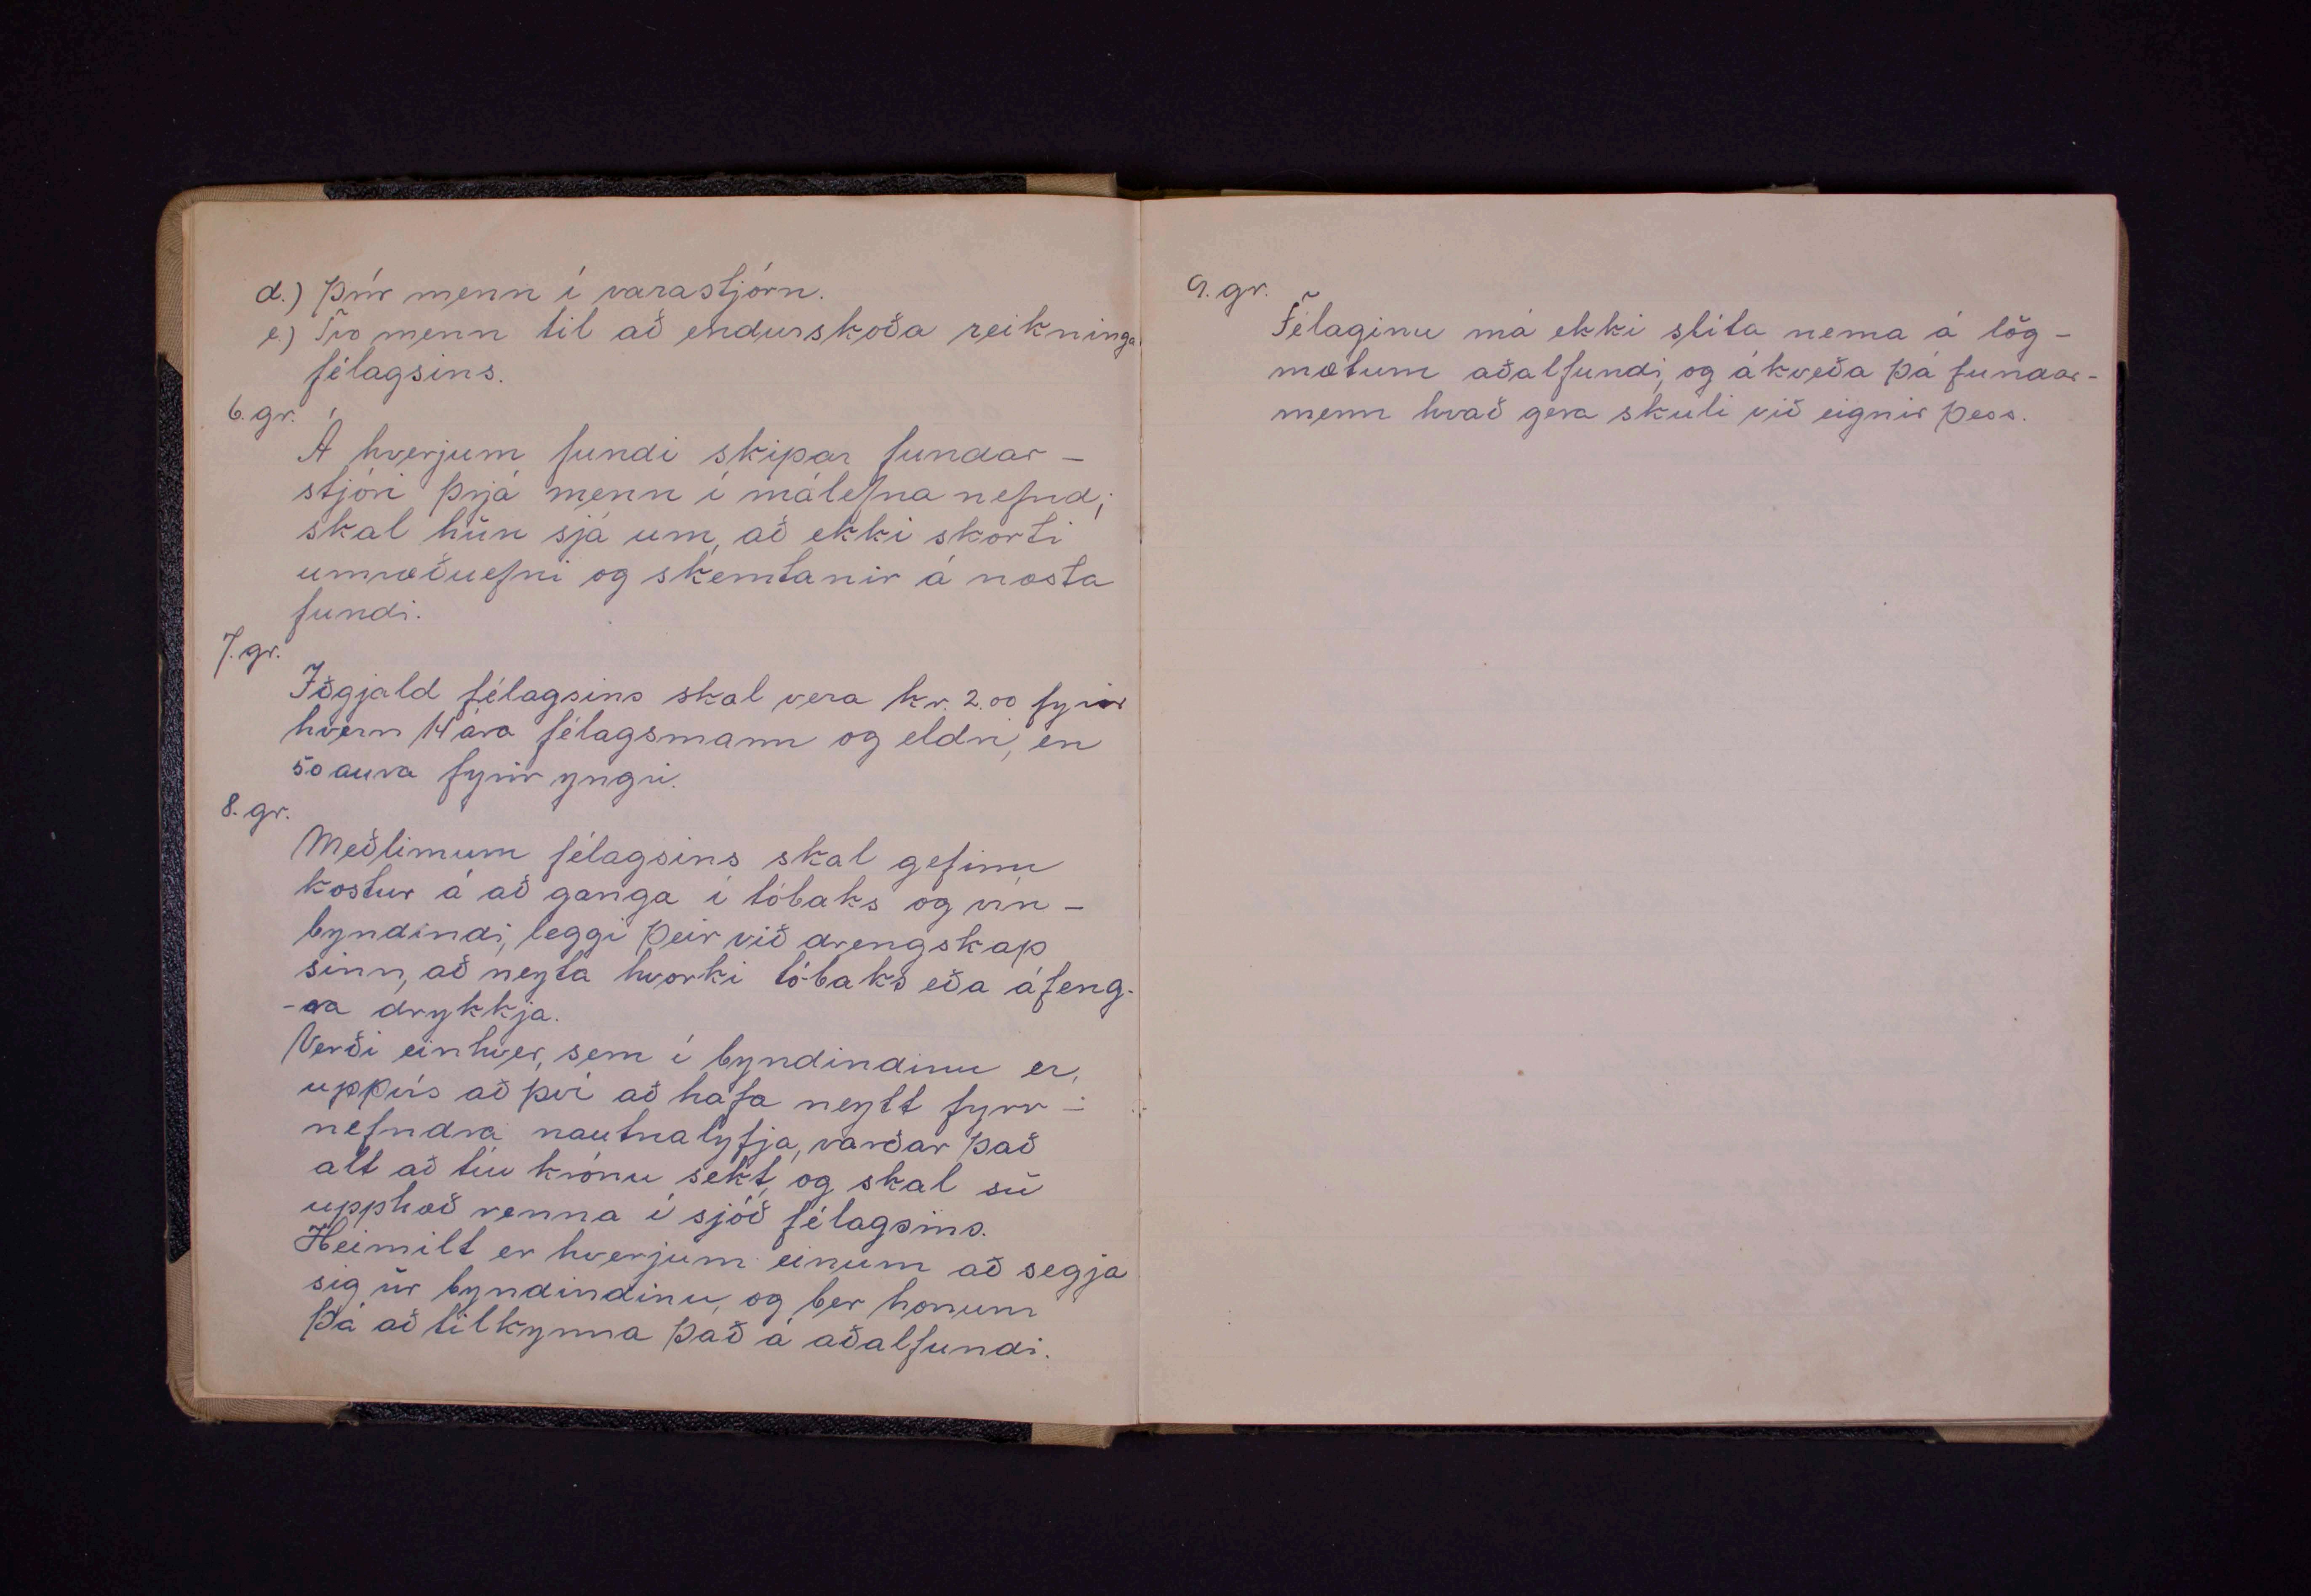 d.) Þrír menn í varastjórn.
e.) Tvo menn til að endurskoða reikninga
félagsins.
6. gr.
Á hverjum fundi skipar fundar-
stjóri þrjá menn í málefna nefnd;
skal hún sjá um, að ekki skorti
umræðuefni og skemtanir á næsta
fundi.
7. gr.
Iðgjald félagsins skal vera kr. 2.00 fyrir
hvern 14 ára félagsmann og eldri, en
50 aura fyrir yngri.
8. gr.
Meðlimum félagsins skal gefinn
kostur á að ganga í tóbaks og vín-
byndindi, leggi þeir við drengskap
sinn, að neyta hvorki tóbaks eða áfeng-
-ra drykkja.
Verði einhver, sem í byndindinu er,
uppvís að því að hafa neytt fyrr-
nefndra nautnalyfja, varðar það
alt að tíu krónu sekt, og skal sú
upphæð renna í sjóð félagsins.
Heimilt er hverjum einum að segja
sig úr byndindinu, og ber honum
þá að tilkynna það á aðalfundi.
9. gr.
Félaginu má ekki slíta nema á lög-
mætum aðalfundi, og ákveða þá fundar-
menn hvað gera skuli við eignir þess.